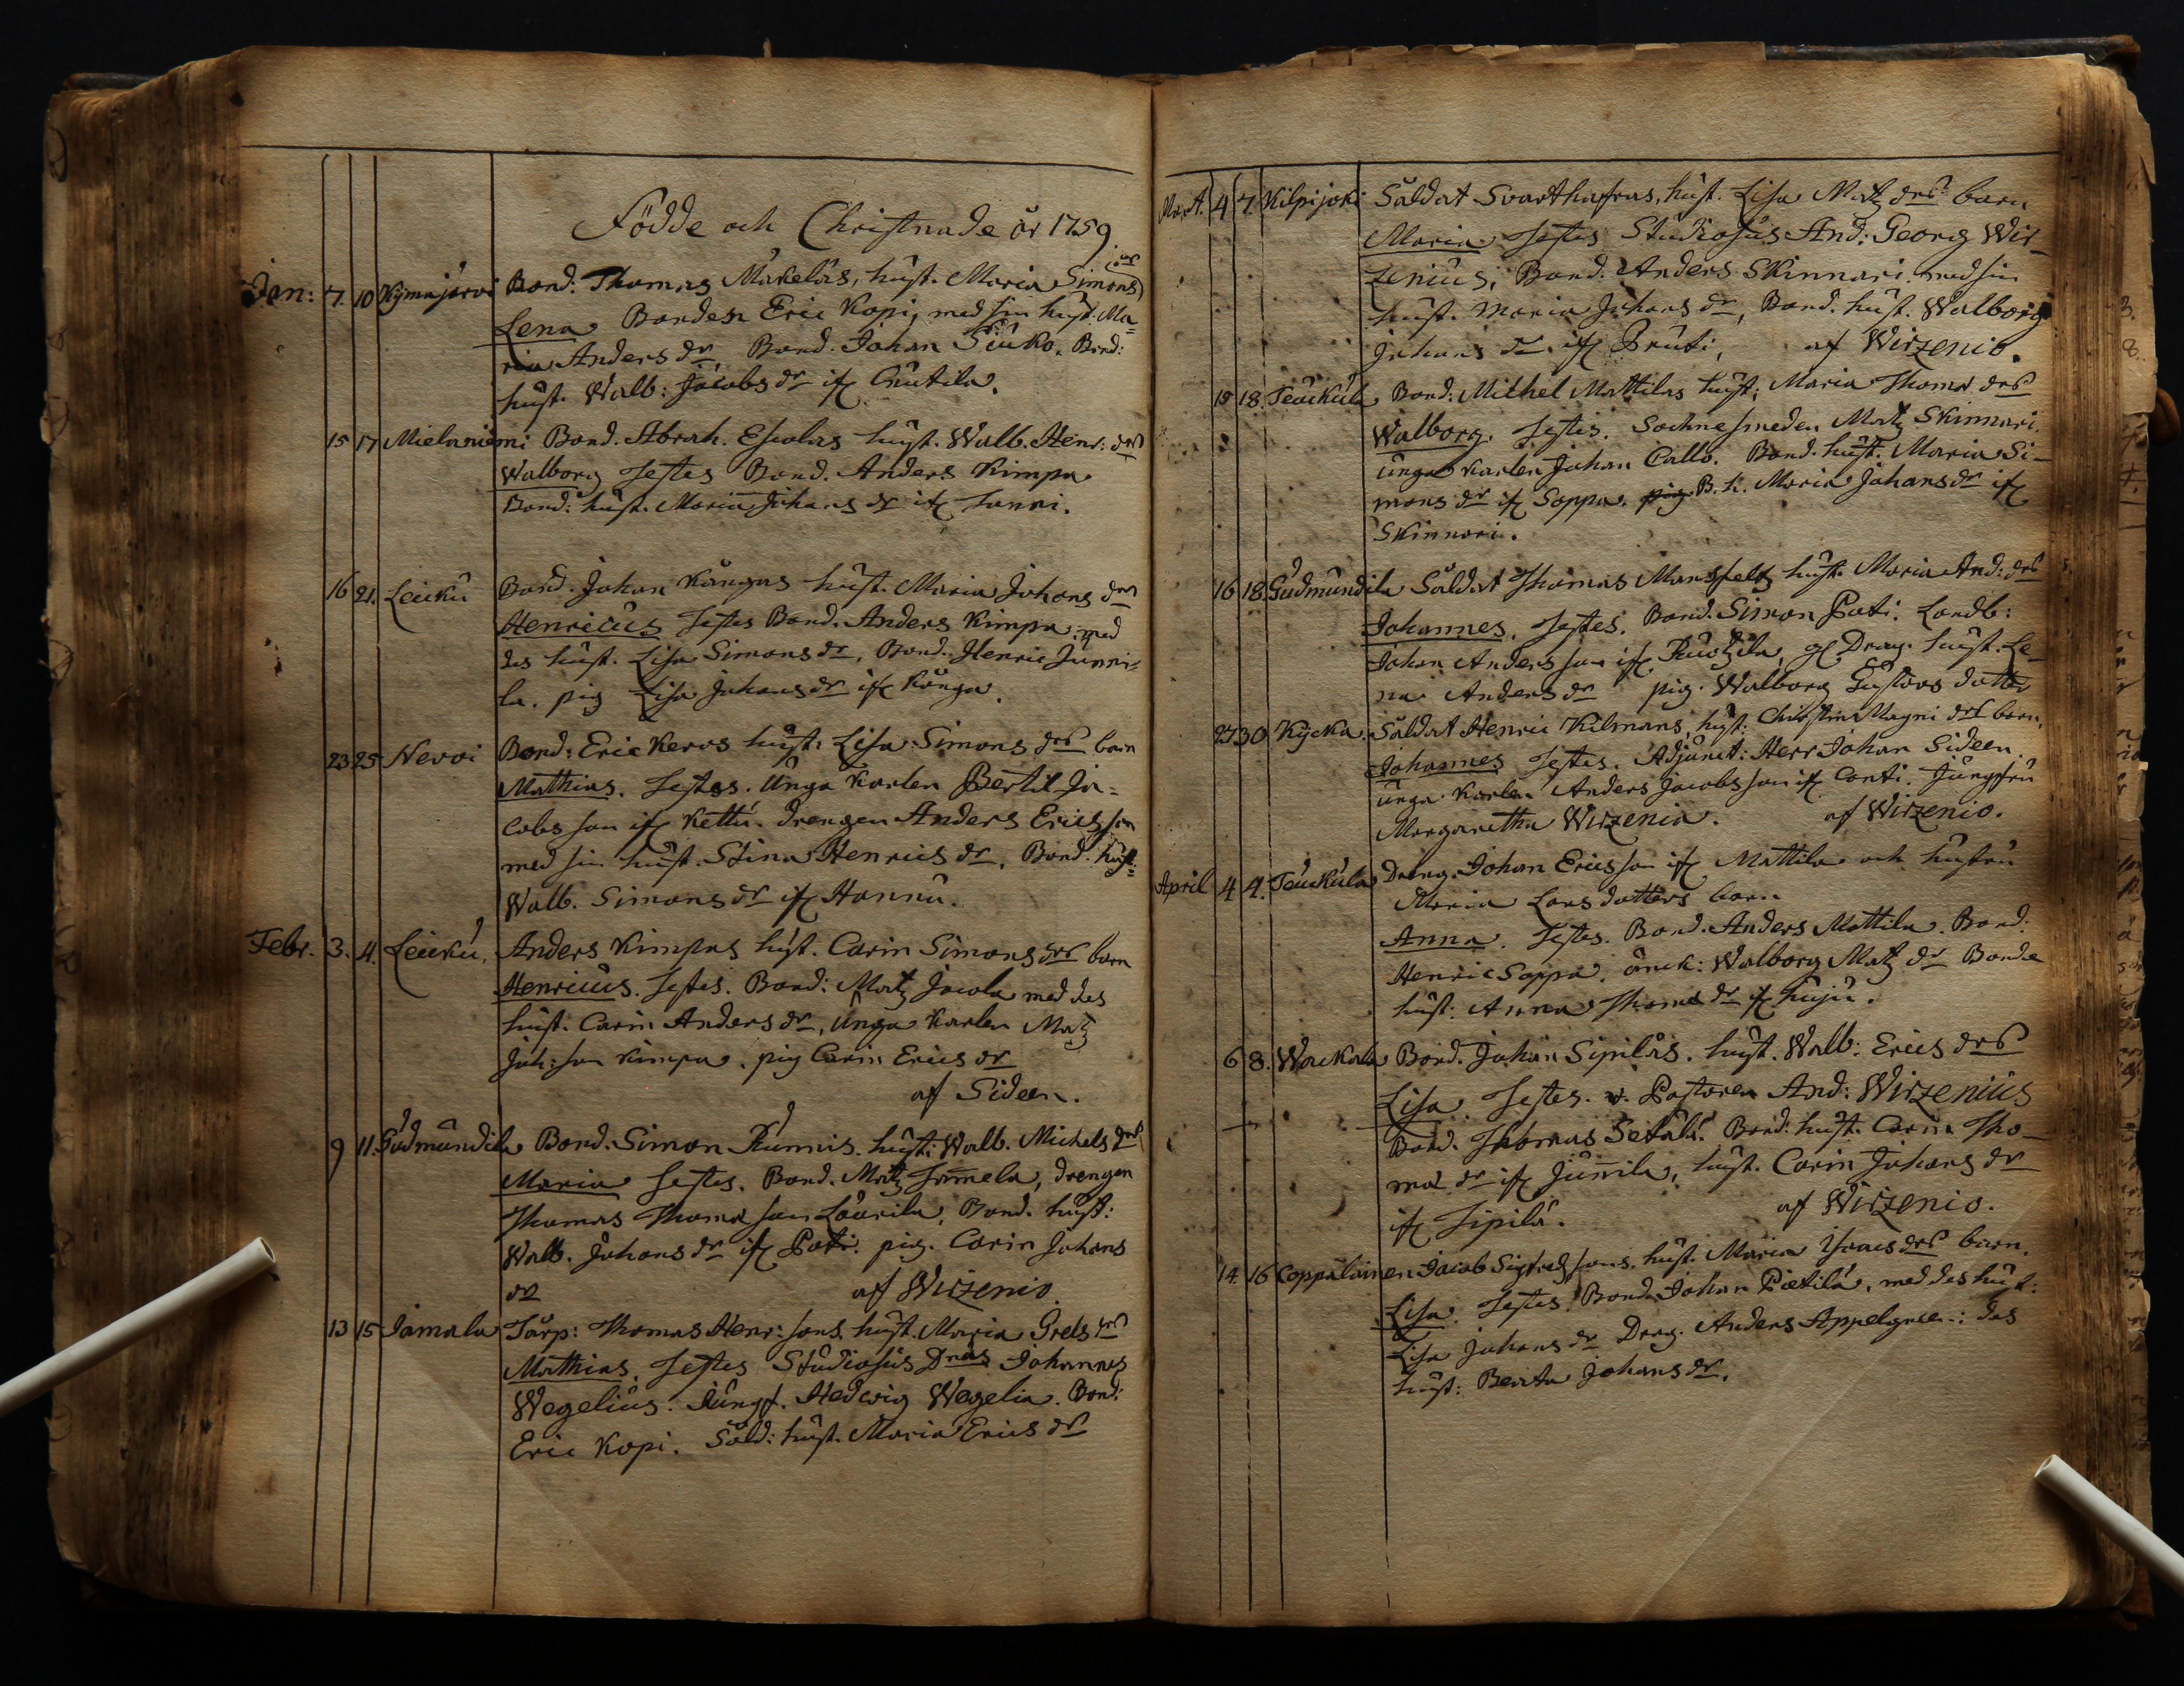 Födde och Christnade år 1759.
Jan: 7. 10 Kymajärvi Bond. Thomas Mäkeläs, hust. Maria Simons drs
Lena Bonden Eric Kopi, med sin hust. Ma=
ria Anders dr, Bond. Johan Siuko. Bond:
hust. Walb: Jacobs dr ifr Cnutila.
15 17 Mielaniemi Bond. Abrah. Escolas hust. Walb. Henr: drs
Walborg Testes Bond. Anders Kimpa
Bond: hust. Maria Johans dr ifr
16 21. Leuku Bond. Johan Kångas hust. Maria Johans drs
Henricus Testes Bond. Anders Kimpa med
des hust. Lisa Simons dr, Bond. Henric Junni=
la. pig Lisa Johans dr ifr Kånga.
23 25 Nevoi Bond: Eric Keros hust: Lisa Simons drs barn
Mathias. Testes. Unga Karlen Bertil Ja=
cobs son ifr Kettu. Drengen Anders Erics son
med sin hust. Stina Henrics dr, Bond. hust.
Walb. Simons dr ifr Hannu.
Febr. 3. 4. Leuku, Anders Kimpas hust. Carin Simons drs barn
Henricus. Testes. Bond: Matz Jacola med des
hust. Carin Anders dr, Unga Karlen Matz
Joh: son Kimpa. pig Carin Erics dr
af Sideen.
9 11. Gudmundila Bond. Simon Kunnis. hust: Walb. Michels drs
Maria Testes. Bond. Matz Immela, drengen
Thomas Thomæ son Låurila, Bond. hust:
Walb. Johans dr ifr Pati. pig. Carin Johans
dr af Wirzenio.
13 15 Jamala Torp: Thomas Henr: sons hust. Maria Grels drs
Mathias. Testes Studiosus Johannes
Wegelius. Jungf. Hedwig Wegelia. Bond:
Eric Kopi. Sold: hust. Maria Erics dr
Mart. 4 7. Kilpijoki Såldat Svarthafras, hust. Lisa Matz drs barn
Maria Testes Studiosus And: Georg Wir=
zenius, Bond. Anders Skinnari med sin
hust. Maria Johans dr, Bond. hust. Walborg
Johans dr ifr Pruti, af Wirzenio.
15 18. Teuckula Bond: Michel Mattilas hust; Maria Thomæ drs
Walborg. Testes. Sochnesmeden Matz Skinnari.
unga Karlen Johan Callo. Bond. hust. Maria Si=
mons dr ifr Soppa. pig B. h. Maria Johans dr ifr
Skinnari.
16 18. Gudmundila Såldat Thomas Mansfeltz hust. Maria And: drs
Johannes. Testes. Bond. Simon Pati. Landb:
Johan Anders son ifr Drag. hust. Le=
na Anders dr pig. Walborg Gustavs dotter
27 30 Kycka. Såldat Henric Kilmans, hust: Christina Magni drs barn.
Johannes Testes. Adjunct: Herr Johan Sideen.
unga Karlen Anders Jacobs son ifr Conti. Jungfru
Margaretha Wirzenia. af Wirzenio.
April 4 4. Teuckula Dreng. Johan Erics son ifr Mattila och hustru
Maria Lars dotters barn
Anna. Testes. Bond. Anders Mattila. Bond:
Henric Soppa. änck: Walborg Matz dr Bonde
hust: Anna Thomæ dr ifr Huju.
6 8. Wackala Bond. Johan Sipilås. hust. Walb: Erics drs
Lisa. Testes. v. Pastoren And: Wirzenius
Bond. Thomas Setälä. Bond: hust. Carin Tho=
mæ dr ifr Junnila, hust. Carin Johans dr
ifr Sipilä. af Wirzenio.
14. 16 Coppalainen Jacob Sigfreds sons. hust. Maria Isaacs drs barn.
Lisa. Testes. Bond. Johan Pietilä, med des hust:
Lisa Johans dr Drag. Anders Appelgreen: des
hust: Beata Johans dr.